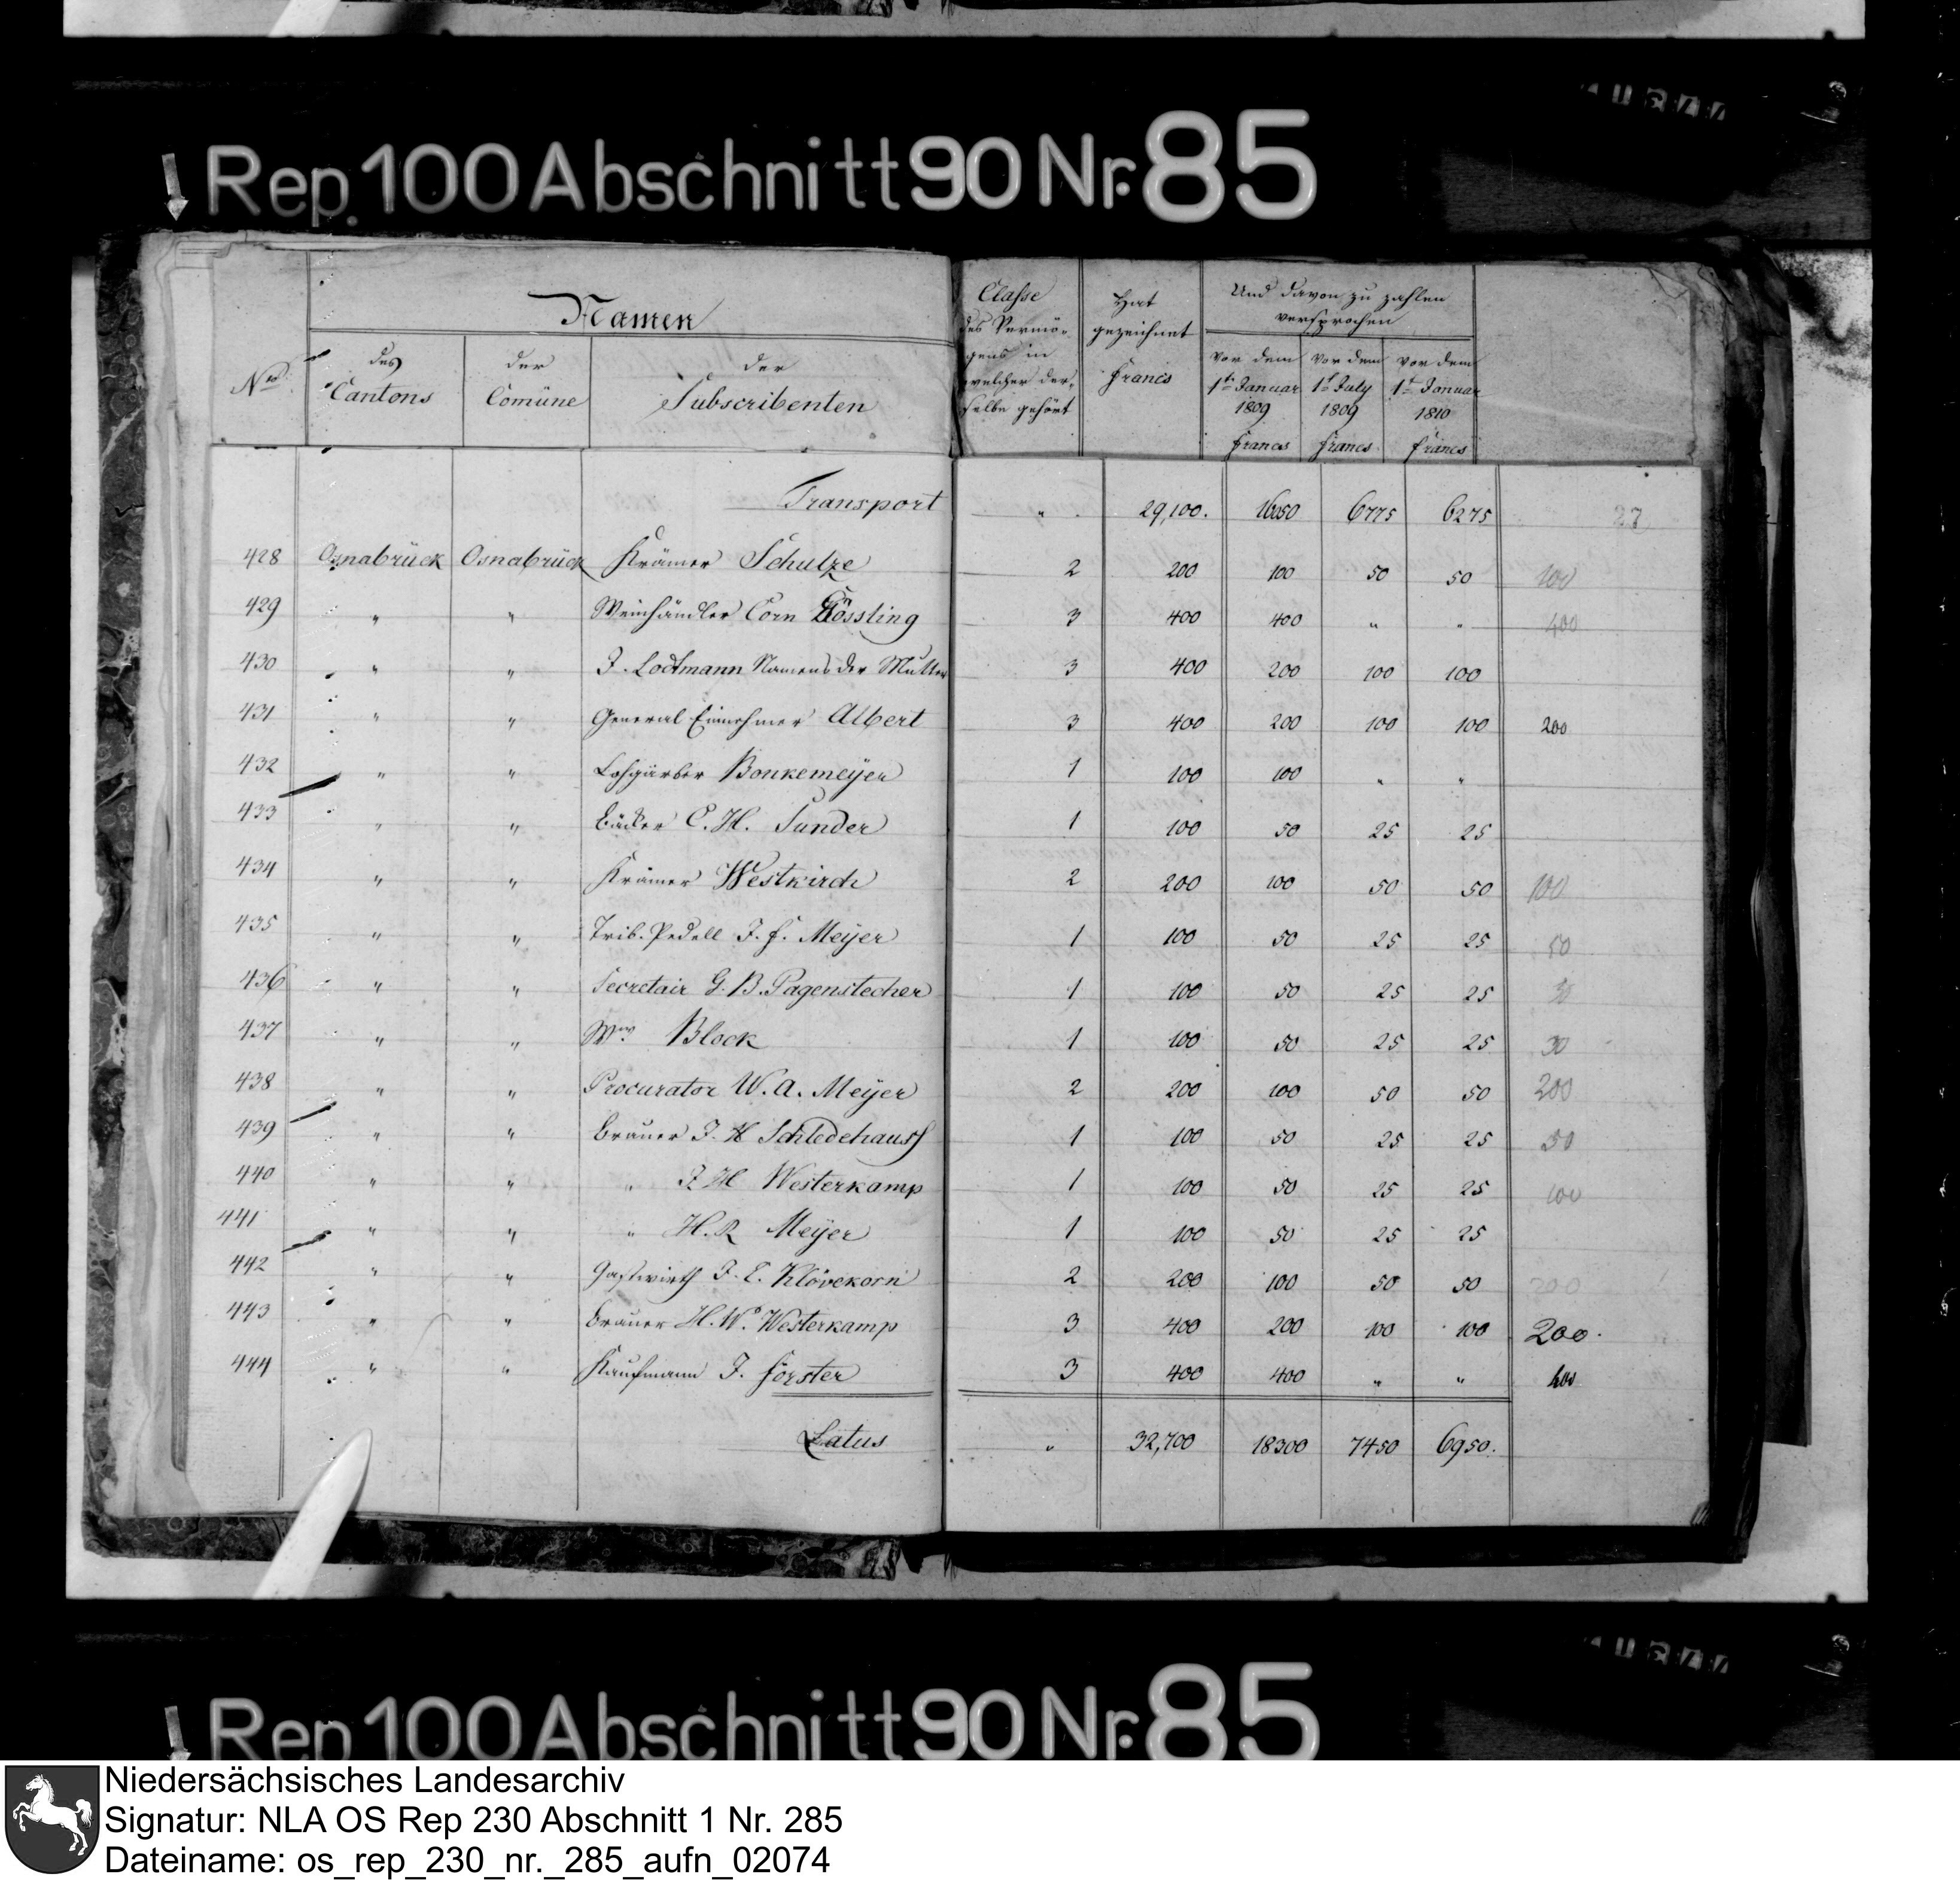 Rep. 100 Abschnitt 90 Nr. 85
Namen
No. des Cantons der Comüne der Subscribenten
Classe des Vermögens in welcher derselbe gehört
Hat gezeichnet Francs
Und davon zu zahlen versprochen
vor dem 1ten Januar 1809 Francs
vor dem 1t July 1809 Francs
vor dem 1t Januar 1810 francs
Transport " 29,100. 16050 6775 6275 27
428 Osnabrück Osnabrück Krämer Schulze 2 200 100 50 50 100
429 " " Weinhändler Corn Gössling 3 400 400 " " 400
430 " " J. Lodtmann Namens der Mutter 3 400 200 100 100
431 " " General Einnehmer Albert 3 400 200 100 100 200
432 " " Lohgärber Bonkemeÿer 1 100 100 " "
433 " " Bäcker C. H. Sunder 1 100 50 25 25
434 " " Krämer Westkirch 2 200 100 50 50 100
435 " " Trib. Pedell J. f. Meÿer 1 100 50 25 25 50
436 " " Secretair G. B. Pagenstecher 1 100 50 25 25
437 " " Ww. Block 1 100 50 25 25 30
438 " " Procurator W. A. Meÿer 2 200 100 50 50 200
439 " " Brauer J. H Schledehauss 1 100 50 25 25 50
440 " " " J H Westerkamp 1 100 50 25 25 100
441 " " " H. R Meÿer 1 100 50 25 25
442 " " Gastwirth J. E. Klövekorn 2 200 100 50 50 200
443 " " Brauer H. W. Westerkamp 3 400 200 100 100 200.
444 " " Kaufmann J. förster 3 400 400 " " 400
Latus " 32,700 18300 7450 6950.
Rep 100 Abschnitt 90 Nr. 85
Niedersächsisches Landesarchiv
Signatur: NLA OS Rep 230 Abschnitt 1 Nr. 285
Dateiname: os_rep_230_nr._285_aufn_02074